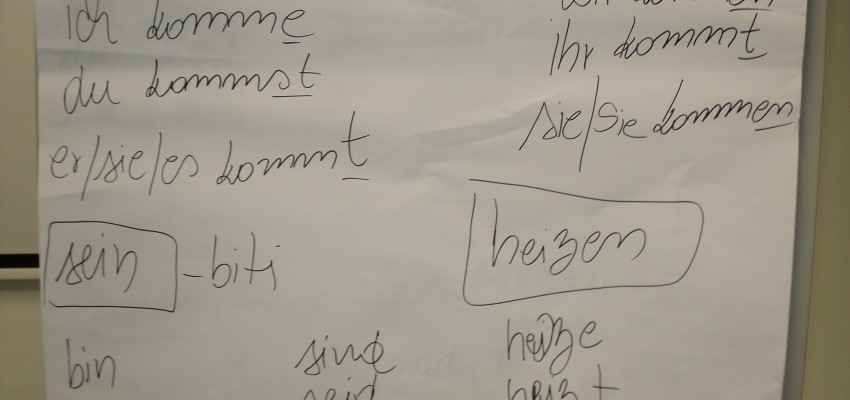 ich komme
ihr kommt
du kommst
sie/Sie kommen
er/sie/es kommt
sein - biti
heizen
bin sind heize
seid heizt